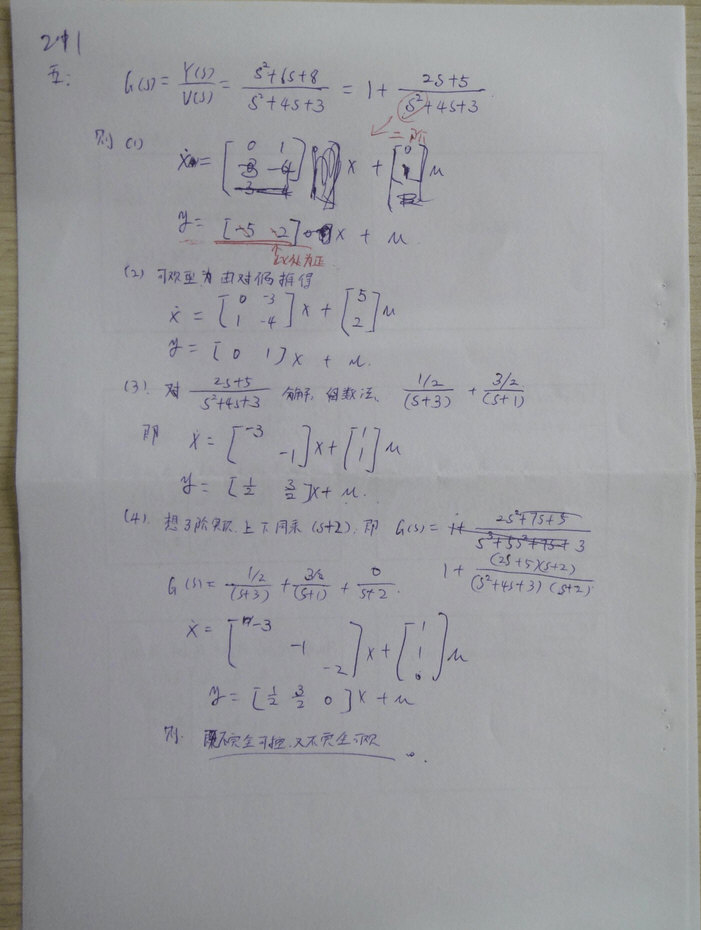 211
五:
G(s) = Y(s)/U(s) = s²+6s+8 / s²+4s+3 = 1 + 2s+5 / s²+4s+3.
则 (1) ẋ = [0 1; -3 -4] x + [0; 1] u
= 阶
y = [-5 -2] x + u.
应为正
(2) 可观型为 由对偶推得
ẋ = [0 -3; 1 -4] x + [5; 2] u
y = [0 1] x + u.
(3). 对 2s+5 / s²+4s+3 分解, 留数法, 1/2 / (s+3) + 3/2 / (s+1)
即 ẋ = [-3 ; -1] x + [1; 1] u
y = [1/2 3/2] x + u.
(4). 想3阶实现 上下同乘 (s+2), 即 G(s) = 1 + (2s+5)(s+2) / (s²+4s+3)(s+2)
G(s) = 1/2 / (s+3) + 3/2 / (s+1) + 0 / s+2.
ẋ = [-3 ; -1 ; -2] x + [1; 1; 0] u
y = [1/2 3/2 0] x + u
则. 不完全可控, 又不完全可观.